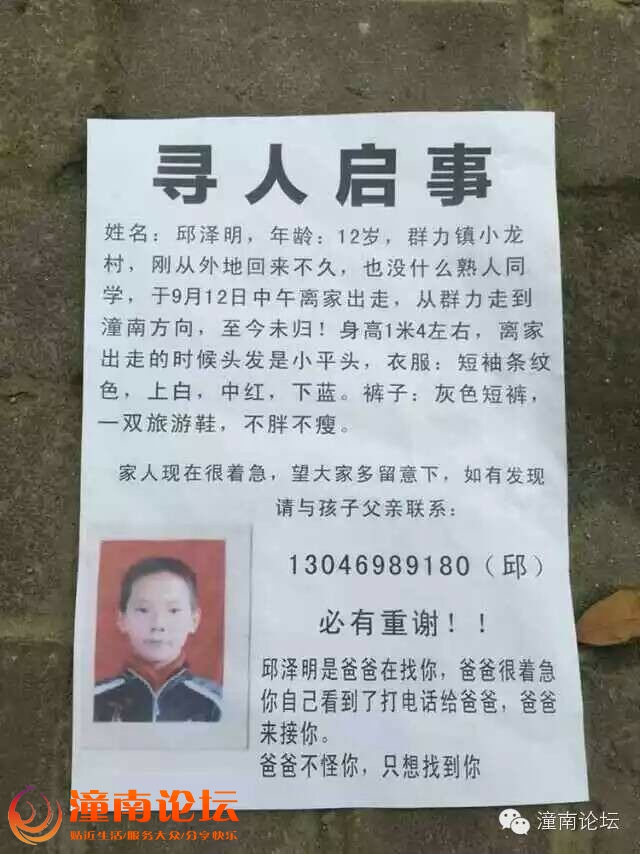 寻人启事
姓名：邱泽明，年龄：12岁，群力镇小龙
村，刚从外地回来不久，也没什么熟人同
学，于9月12日中午离家出走，从群力走到
潼南方向，至今未归！身高1米4左右，离家
出走的时候头发是小平头，衣服：短袖条纹
色，上白，中红，下蓝。裤子：灰色短裤，
一双旅游鞋，不胖不瘦。
家人现在很着急，望大家多留意下，如有发现
请与孩子父亲联系：
13046989180（邱）
必有重谢！！
邱泽明是爸爸在找你，爸爸很着急
你自己看到了打电话给爸爸，爸爸
来接你。
爸爸不怪你，只想找到你
潼南论坛
贴近生活/服务大众/分享快乐
潼南论坛